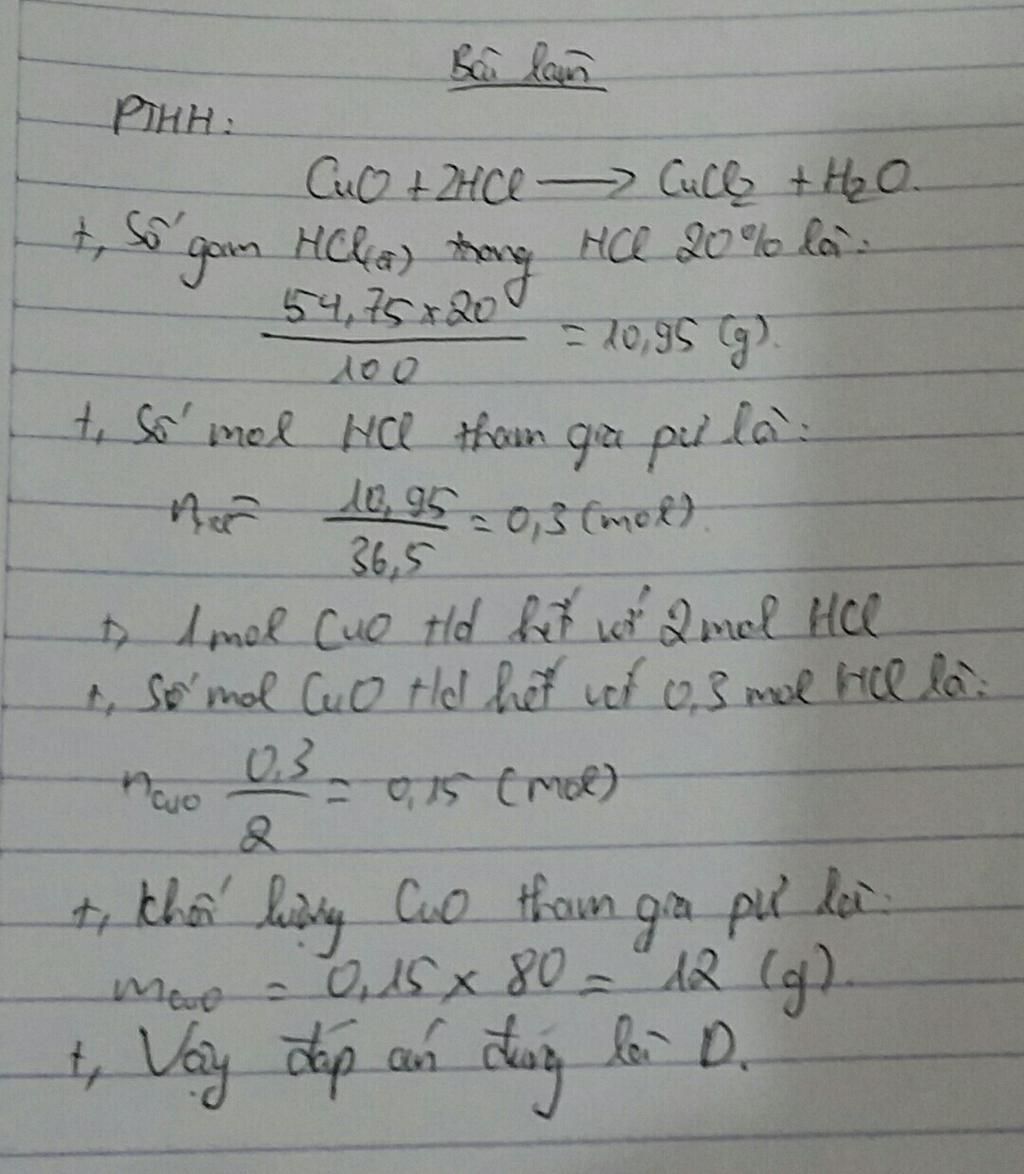 Bài làm
PTHH:
CuO + 2HCl → CuCl2 + H2O.
+, Số gam HCl(a) trong HCl 20% là:
54,75 x 20 / 100 = 10,95 (g).
+, Số mol HCl tham gia pư là:
nHCl = 10,95 / 36,5 = 0,3 (mol).
+, 1 mol CuO t/d hết với 2 mol HCl
+, Số mol CuO t/d hết với 0,3 mol HCl là:
nCuO 0,3 / 2 = 0,15 (mol)
+, Khối lượng CuO tham gia pư là:
mCuO = 0,15 x 80 = 12 (g).
+, Vậy đáp án đúng là D.